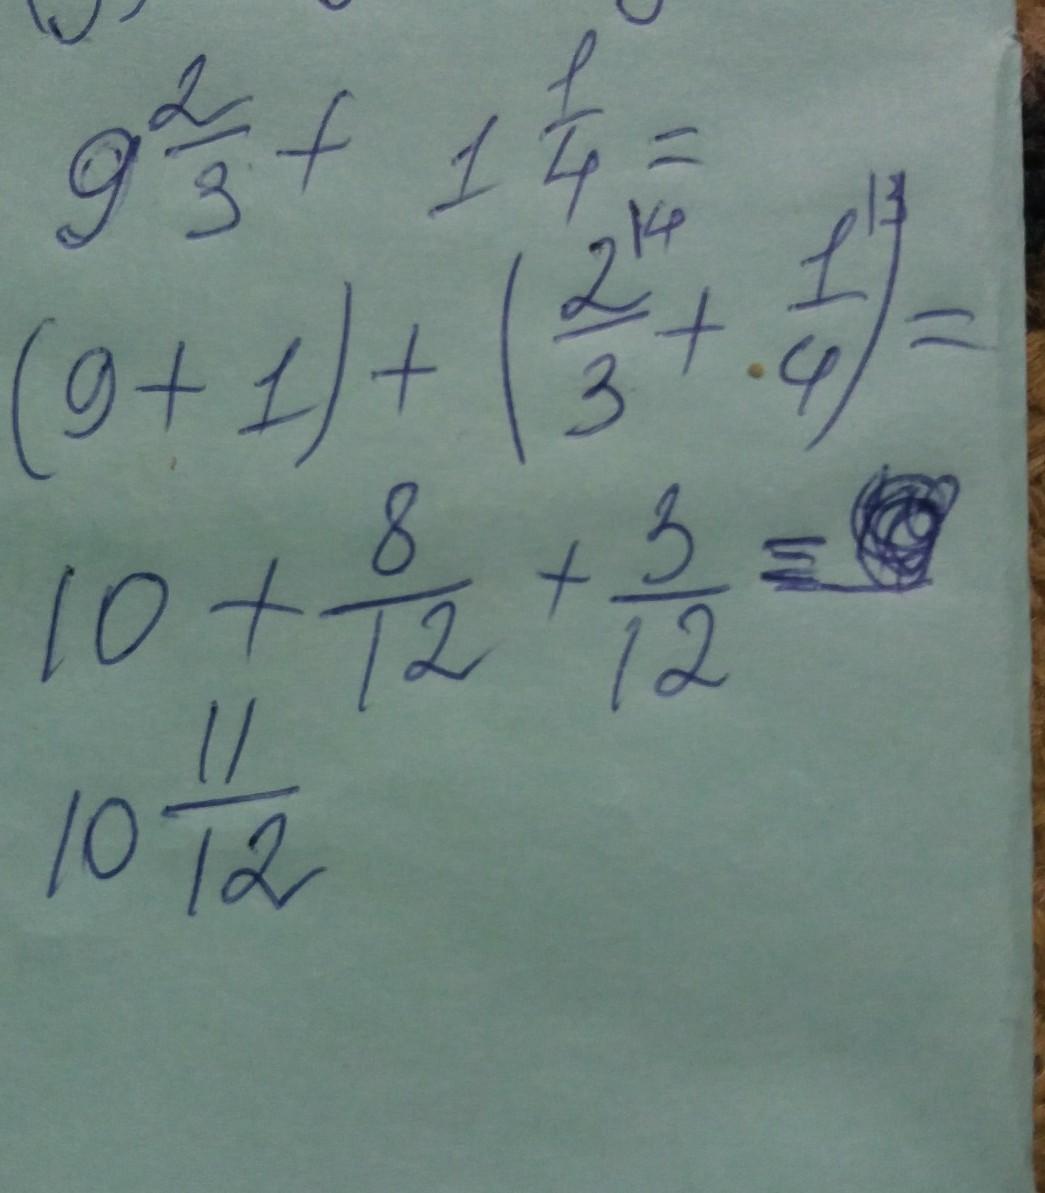 9 2/3 + 1 1/4 =
(9 + 1) + (2/3 |4 + 1/4 |3) =
10 + 8/12 + 3/12 =
10 11/12